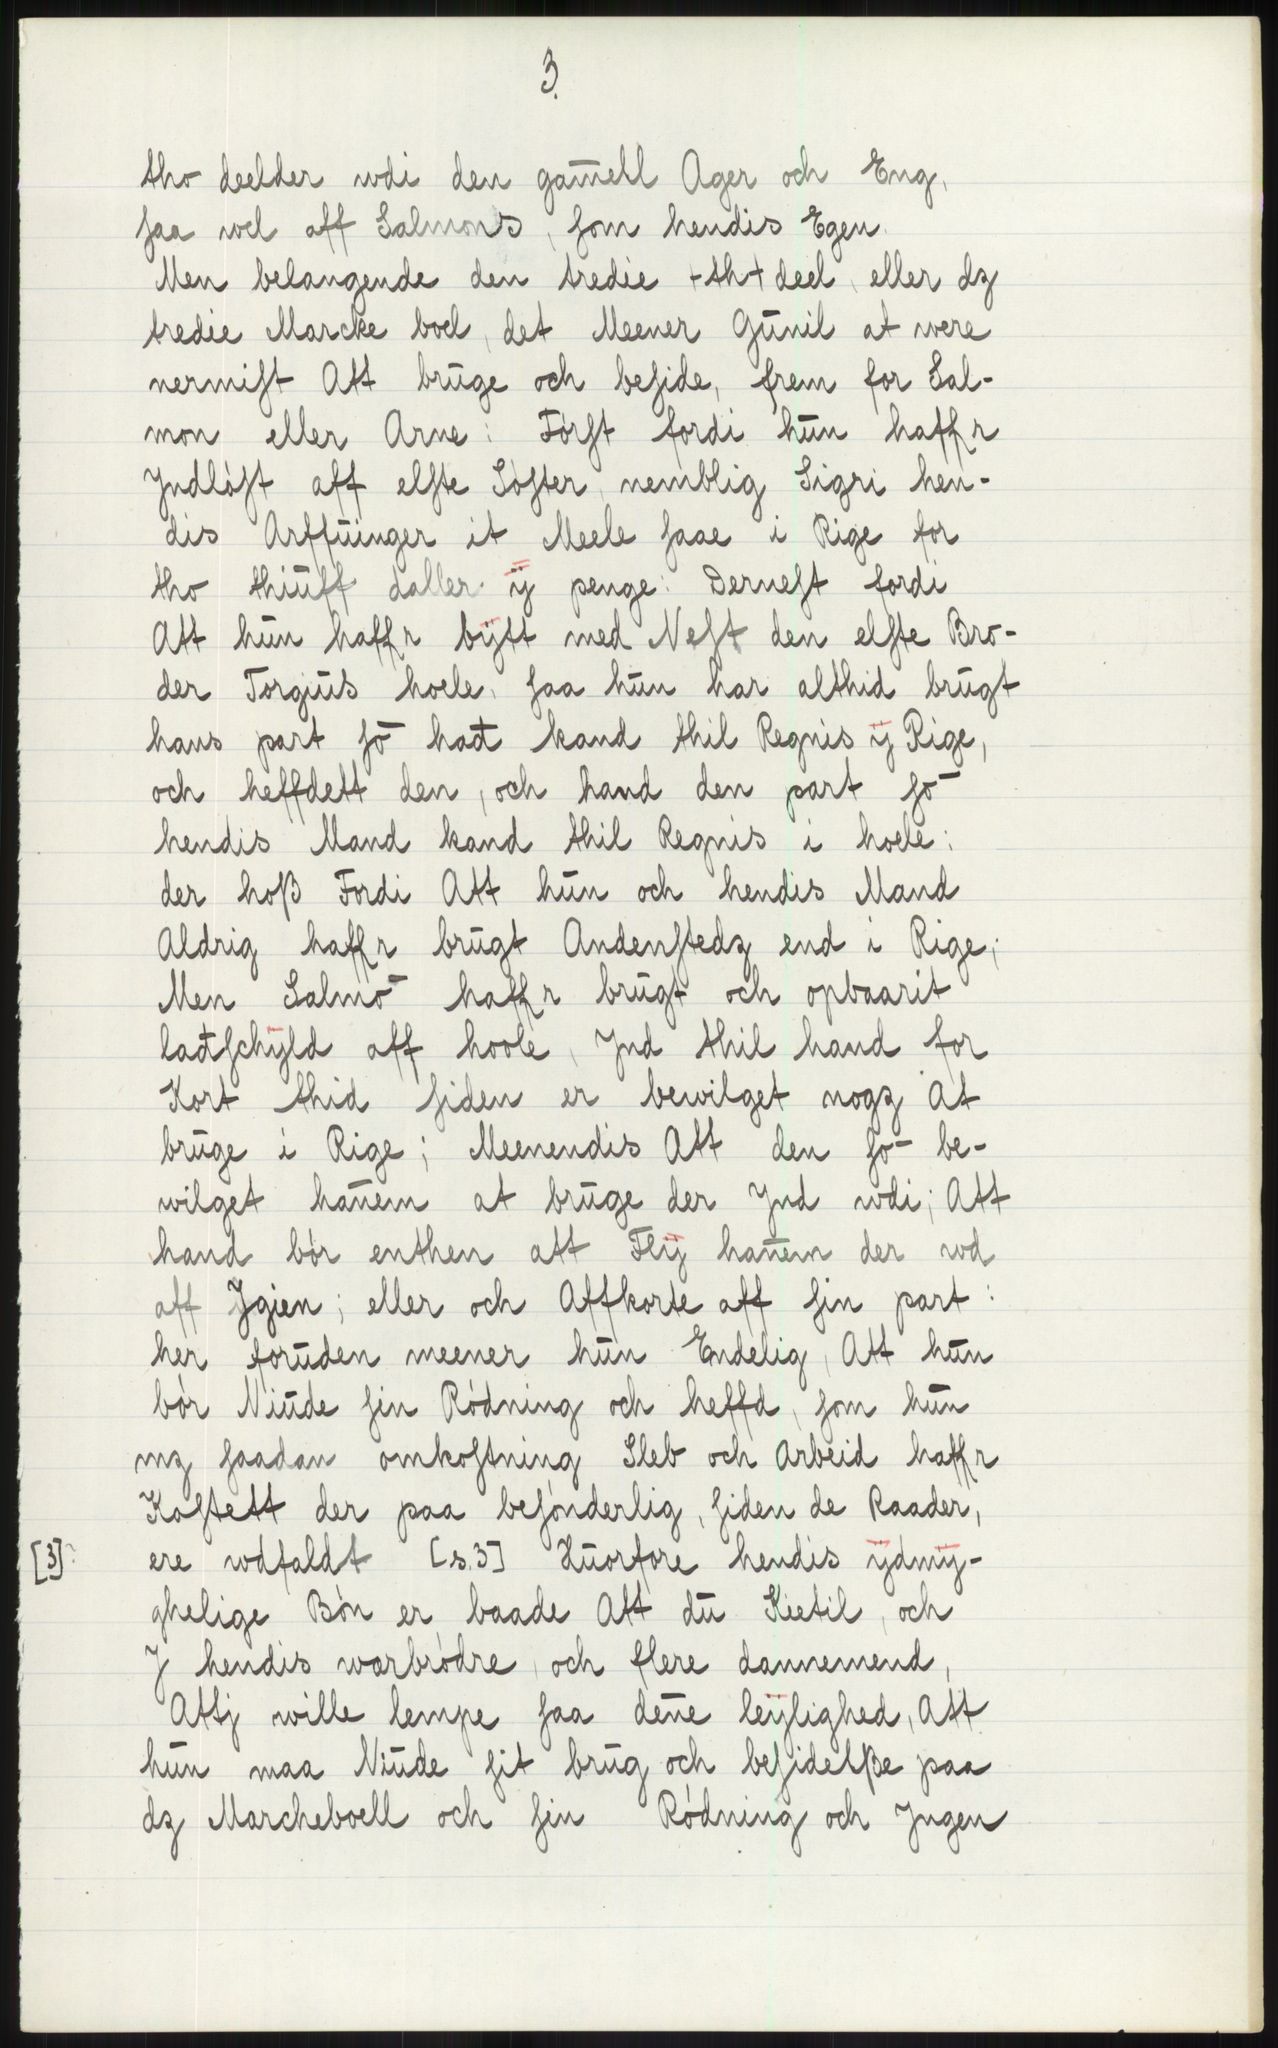 3.
tho deelder wdi den gam̄ell Ager och Eng,
ſaa wel aff Salmons, ſom hendis Egen.
Men belangende den tredie +th+ deel, eller dz
tredie Marcke boel, det Meener Gūnil at were
nermiſt Att brūge och beſide, frem for Sal-
mon eller Arne: Førſt fordi hūn haffr
Jndløſt aff elſte Søſter, nemblig Sigri hen-
dis Arffūinger it Meele ſaae i Rige for
tho thiūff daller ÿ penge: Derneſt fordi
Att hūn haffr bÿtt med Neſt den elſte Bro-
der Torgiūs hoele, ſaa hūn har althid brūgt
hans part ſō hađ kand thil Regnis ÿ Rige,
och heffdett den, och hand den part ſō
hendis Mand kand thil Regnis i hoele:
der hoß Fordi Att hūn och hendis Mand
Aldrig haffr brūgt Andenſtedz end i Rige;
Men Salmō haffr brūgt och opbaarit
lađſchÿld aff hoole, Jnd thil hand for
Kort thid ſiden er bewilget nogz At
brūge i Rige; Meenendis Att den ſō be-
wilget han̄em at brūge der Jnd wdi; Att
hand bør enthen att Flÿ han̄em der wd
aff Jgien; eller och Affkorte aff ſin part:
her forūden meener hūn Endelig, Att hūn
bør Niūde ſin Rødning och heffd, ſom hūn
mz ſaadan omkoſtning Sleb och Arbeid haffr
Koſtett der paa beſønderlig, ſiden de Raader,
[3] ere wdfaldt [s.3] Hūorfore hendis ÿdmÿ-
ghelige Bøn er, baade Att dū Kietil, och
J hendis warbrødre, och flere dannemend,
Attj wille lempe ſaa den̄e leÿlighed, Att
hūn maa Niūde ſit brūg och beſidelße paa
dz Marcheboell och ſin Rødning och Jngen